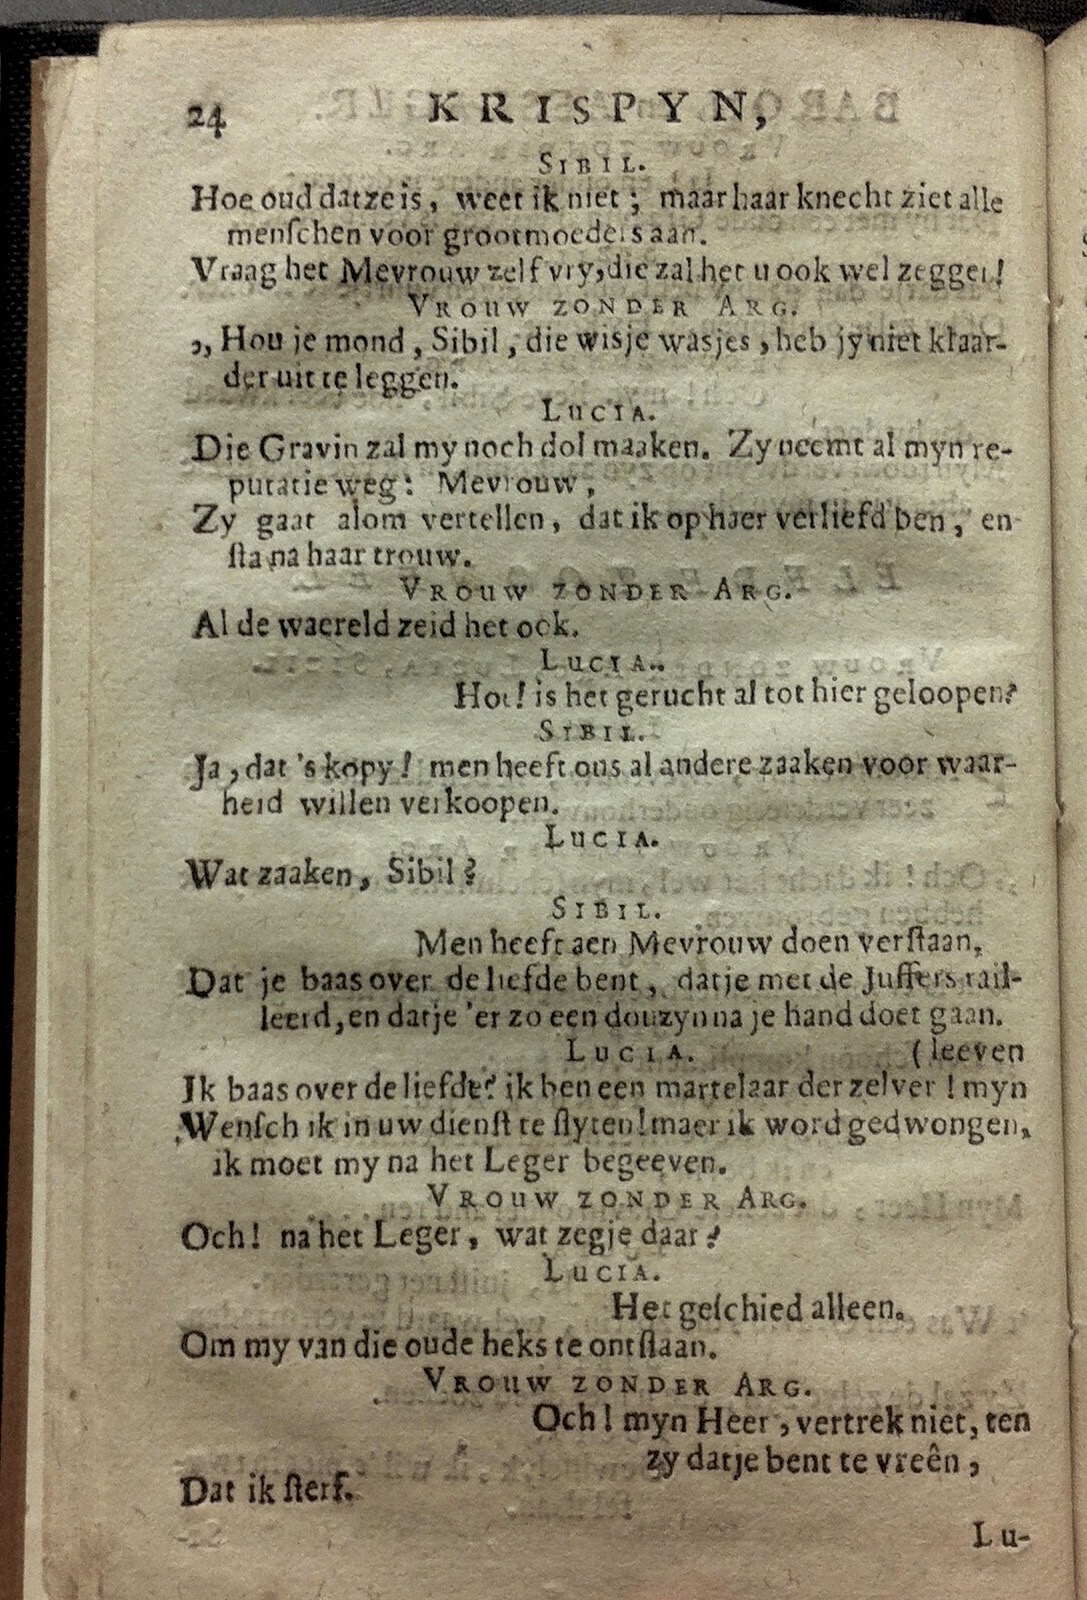 24 KRISPYN,
SIBIL.
Hoe oud datze is, weet ik niet; maar haar knecht ziet alle
menſchen voor grootmoeders aan.
Vraag het Mevrouw zelf vry, die zal het u ook wel zeggen!
VROUW ZONDER ARG.
,, Hou je mond, Sibil, die wisje wasjes, heb jy niet klaar-
der uit te leggen.
LUCIA.
Die Gravin zal my noch dol maaken. Zy neemt al myn re-
putatie weg: Mevrouw,
Zy gaat alom vertellen, dat ik op haer verliefd ben, en
ſta na haar trouw.
VROUW ZONDER ARG.
Al de waereld zeid het ook.
LUCIA.
Hoe! is het gerucht al tot hier geloopen?
SIBIL.
Ja, dat 's kopy! men heeft ons al andere zaaken voor waar-
heid willen verkoopen.
LUCIA.
Wat zaaken, Sibil?
SIBIL.
Men heeft aen Mevrouw doen verſtaan,
Dat je baas over de liefde bent, datje met de Juffers rail-
leerd, en datje 'er zo een douzyn na je hand doet gaan.
LUCIA. (leeven
Ik baas over de liefde? ik ben een martelaar der zelver! myn
Wenſch ik in uw dienſt te ſlyten! maer ik word gedwongen,
ik moet my na het Leger begeeven.
VROUW ZONDER ARG.
Och! na het Leger, wat zegje daar?
LUCIA.
Het geſchied alleen.
Om my van die oude heks te ontſlaan.
VROUW ZONDER ARG.
Och! myn Heer, vertrek niet, ten
zy datje bent te vreên,
Dat ik ſterf.
Lu-